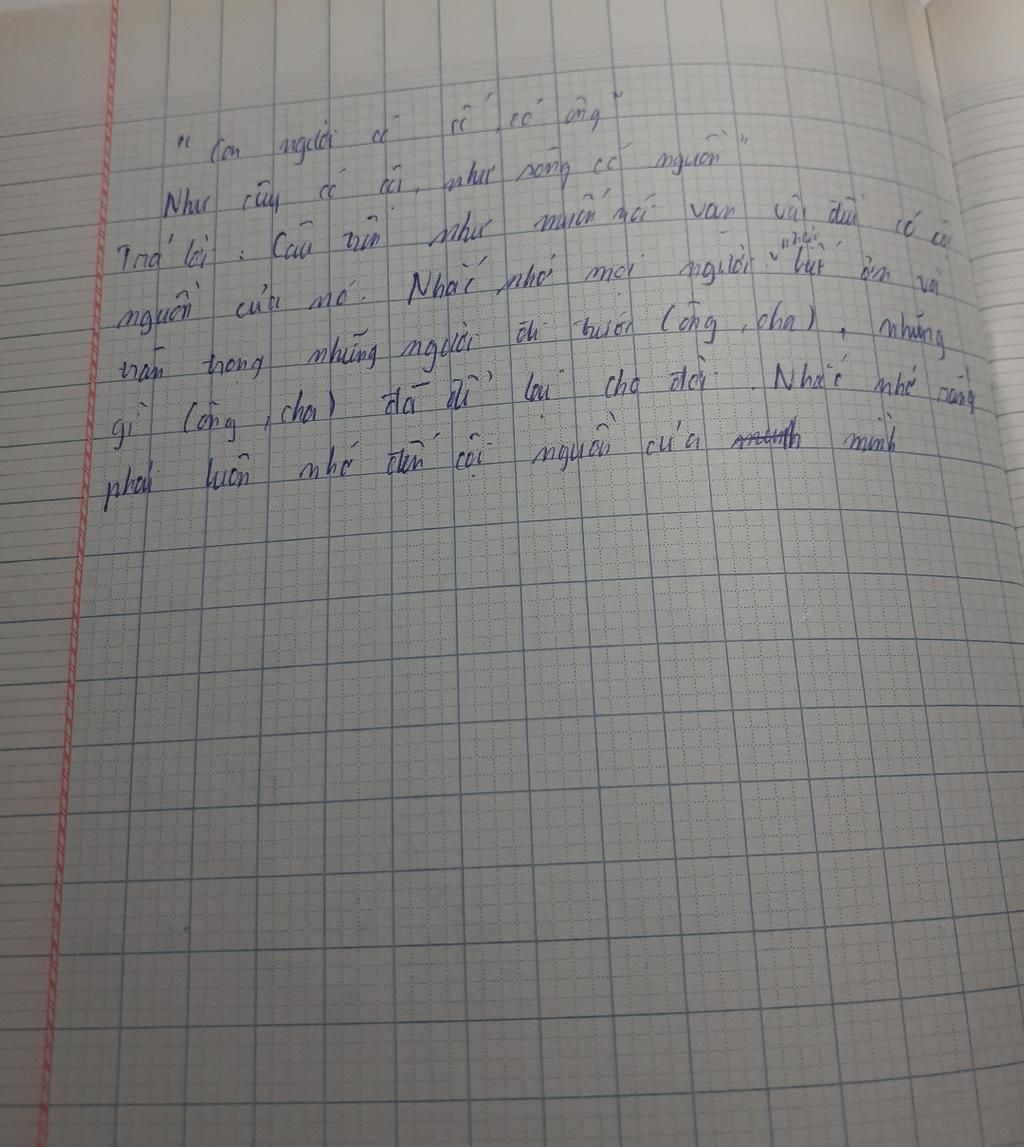 "Con người có cố, có ông"
Như cây có cội, như sông có nguồn"
Trả lời : Câu trên như muốn nói vạn vật đều có cội
nguồn của nó. Nhắc nhở mọi người "phải biết ơn và
trân trọng những người đi trước (ông, cha), những
gì (ông, cha) đã để lại cho đời. Nhắc nhở rằng
phải luôn nhớ đến cội nguồn của mình